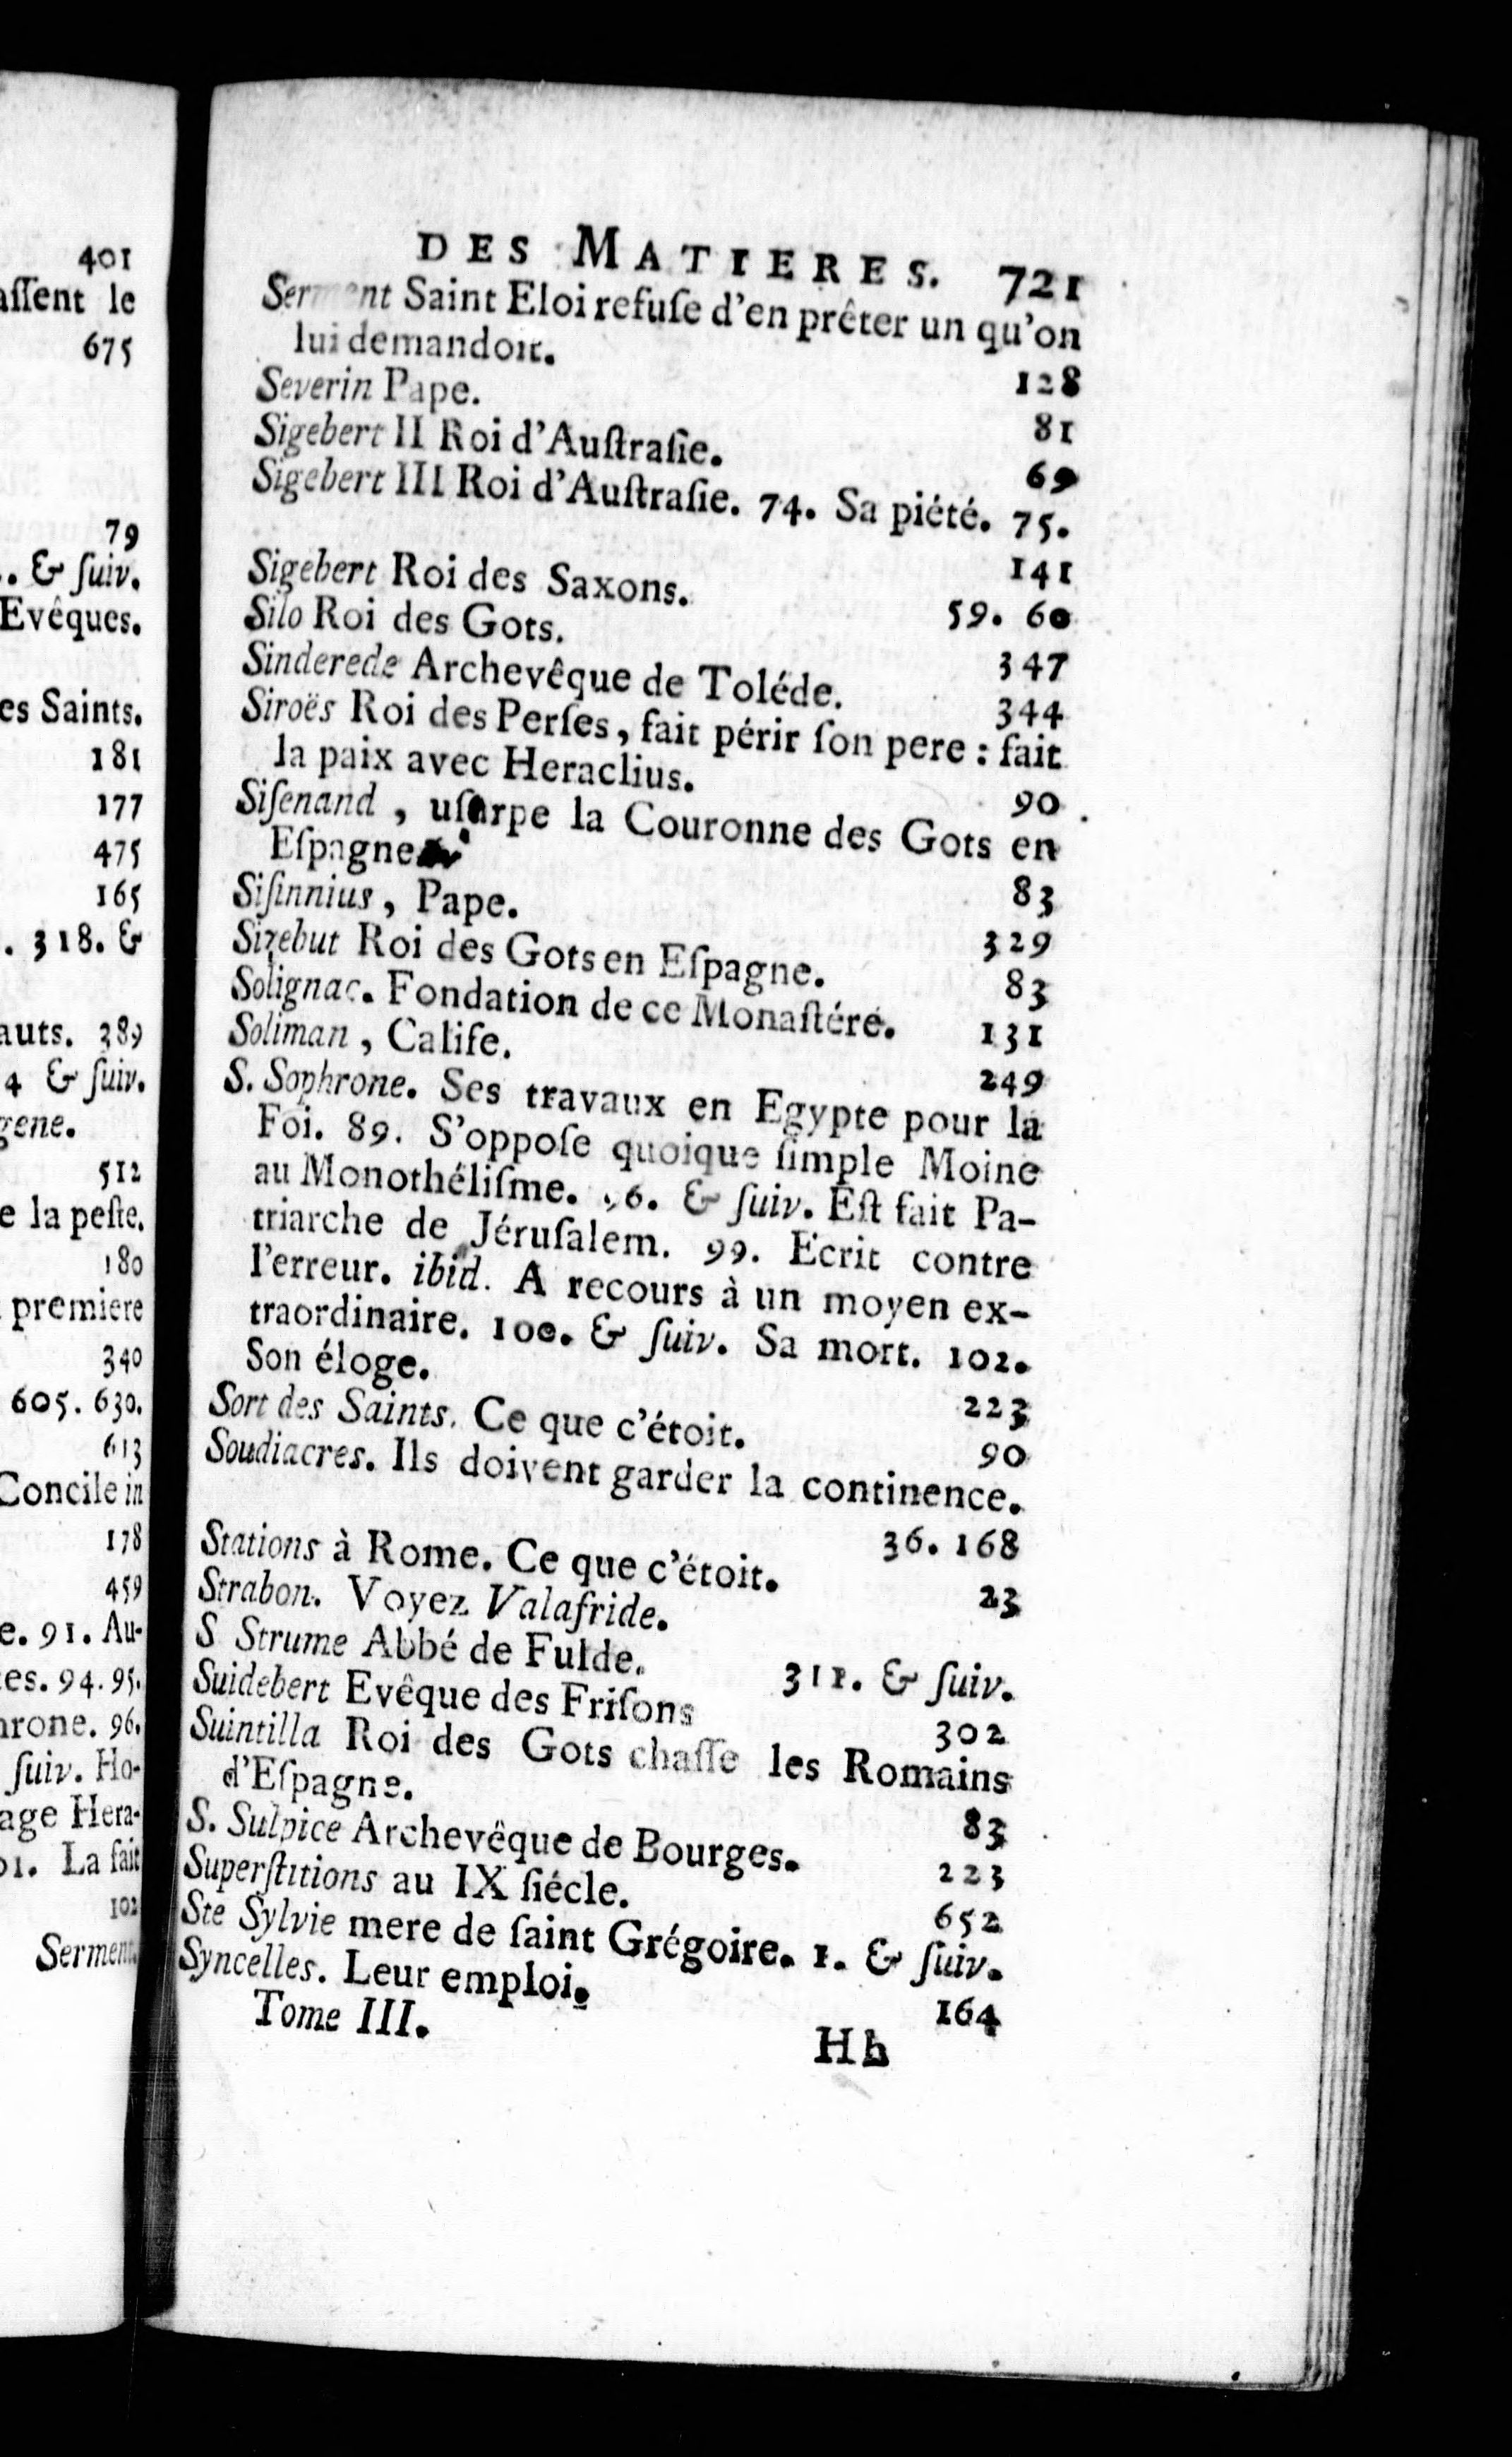 401
aſſent le
675
79
. & ſuiv.
Evêques.
es Saints.
181
177
475
165
. 318. &
auts. 389
4 & ſuiv.
gene.
512
e la peſte.
180
premiere
340
605. 630.
613
Concile in
178
459
e. 91. Au-
es. 94. 95.
hrone. 96.
ſuiv. Ho-
age Hera-
01. La fait
102
Serment.
DES MATIERES. 721
Serment Saint Eloi refuſe d'en prêter un qu'on
lui demandoit. 128
Severin Pape. 81
Sigebert II Roi d'Auſtraſie. 69
Sigebert III Roi d'Auſtraſie. 74. Sa piété. 75.
141
Sigebert Roi des Saxons. 59. 60
Silo Roi des Gots. 347
Sinderede Archevêque de Toléde. 344
Siroës Roi des Perſes, fait périr ſon pere : fait
la paix avec Heraclius. 90
Siſenand, uſurpe la Couronne des Gots en
Eſpagne. 83
Siſinnius, Pape. 329
Sizebut Roi des Gots en Eſpagne. 83
Solignac. Fondation de ce Monaſtére. 131
Soliman, Calife. 249
S. Sophrone. Ses travaux en Egypte pour la
Foi. 89. S'oppoſe quoique ſimple Moine
au Monothéliſme. 6. & ſuiv. Eſt fait Pa-
triarche de Jéruſalem. 99. Ecrit contre
l'erreur. ibid. A recours à un moyen ex-
traordinaire. 100. & ſuiv. Sa mort. 102.
Son éloge. 223
Sort des Saints. Ce que c'étoit. 90
Soudiacres. Ils doivent garder la continence.
36. 168
Stations à Rome. Ce que c'étoit. 23
Strabon. Voyez Valafride.
S Strume Abbé de Fulde. 311. & ſuiv.
Suidebert Evêque des Friſons 302
Suintilla Roi des Gots chaſſe les Romains
d'Eſpagne. 83
S. Sulpice Archevêque de Bourges. 223
Superſtitions au IX ſiécle. 652
Ste Sylvie mere de ſaint Grégoire. 1. & ſuiv.
Syncelles. Leur emploi. 164
Tome III. Hh